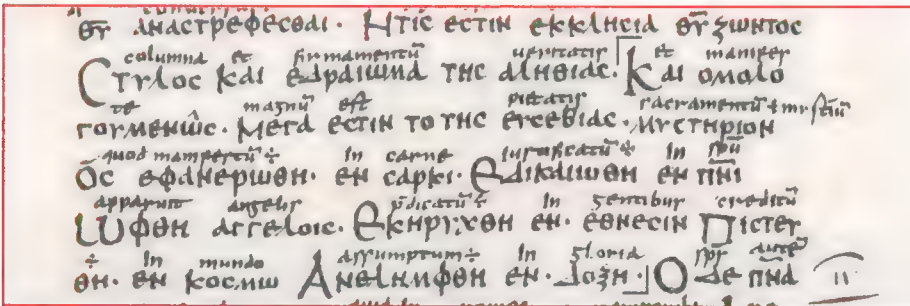 ΘΥ̅ ΑΝΑСΤΡΕΦΕСΘΑΙ · ΗΤΙС ΕСΤΙΝ ΕΚΚΛΗСΙΑ ΘΥ̅ ΖΩΝΤΟС
columna et firmamentu̅ ueritatis et manifes
СΤΥΛΟС ΚΑΙ ΕΔΡΑΙΩΜΑ ΤΗС ΑΛΗΘΙΑС · ΚΑΙ ΟΜΟΛΟ
te magnu̅ est pietatis sacramentu̅
ΓΟΥΜΕΝΩС · ΜΕΓΑ ΕСΤΙΝ ΤΟ ΤΗС ΕΥСΕΒΙΑС · ΜΥСΤΗΡΙΟΝ
quod manifestu̅ ÷ in carne iustificatu̅ ÷ in spu̅
Ο̅С ΕΦΑΝΕΡΩΘΗ · ΕΝ СΑΡΚΙ · ΕΔΙΚΑΙΩΘΗ ΕΝ ΠΝΙ̅
apparuit angelis p̅dicatu̅ ÷ in gentibus creditu̅
ΩΦΘΗ ΑΓΓΕΛΟΙС · ΕΚΗΡΥΧΘΗ ΕΝ · ΕΘΝΕСΙΝ ΠΙСΤΕΥ
÷ in mundo assumptum ÷ in gloria sps̅ aute̅
ΘΗ · ΕΝ ΚΟСΜΩ ΑΝΕΛΗΜΦΘΗ ΕΝ · ΔΟΞΗ · Ο ΔΕ ΠΝΑ̅ 11